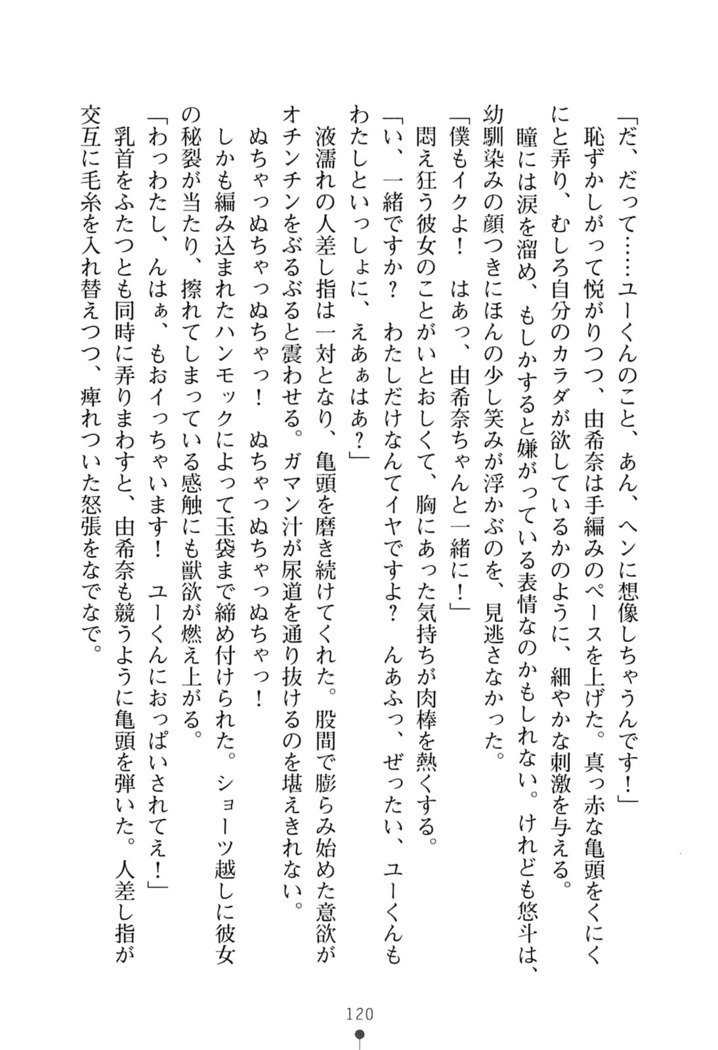 「だ、だって……ユーくんのこと、あん、ヘンに想像しちゃうんです！」
恥ずかしがって悦がりつつ、由希奈は手編みのペースを上げた。真っ赤な亀頭をくにく
にと弄り、むしろ自分のカラダが欲しているかのように、細やかな刺激を与える。
瞳には涙を溜め、もしかすると嫌がっている表情なのかもしれない。けれども悠斗は、
幼馴染みの顔つきにほんの少し笑みが浮かぶのを、見逃さなかった。
「僕もイクよ！　はあっ、由希奈ちゃんと一緒に！」
悶え狂う彼女のことがいとおしくて、胸にあった気持ちが肉棒を熱くする。
「い、一緒ですか？　わたしだけなんてイヤですよ？　んあふっ、ぜったい、ユーくんも
わたしといっしょに、えあぁはあ？」
液濡れの人差し指は一対となり、亀頭を磨き続けてくれた。股間で膨らみ始めた意欲が
オチンチンをぶるぶると震わせる。ガマン汁が尿道を通り抜けるのを堪えきれない。
ぬちゃっぬちゃっぬちゃっ！　ぬちゃっぬちゃっ！
しかも編み込まれたハンモックによって玉袋まで締め付けられた。ショーツ越しに彼女
の秘裂が当たり、擦れてしまっている感触にも獣欲が燃え上がる。
「わっわたし、んはぁ、もおイっちゃいます！　ユーくんにおっぱいされてえ！」
乳首をふたつとも同時に弄りまわすと、由希奈も競うように亀頭を弾いた。人差し指が
交互に毛糸を入れ替えつつ、痺れついた怒張をなでなで。
120